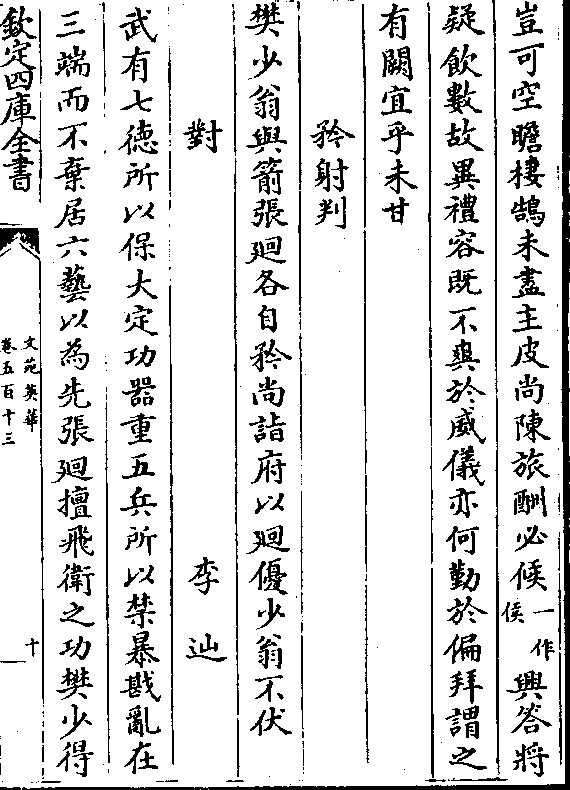 豈可空瞻棲鵠未盡主皮尚陳旅酬必候一作侯興答將
疑飲數故異禮容既不爽於威儀亦何勤於偏拜謂之
有闕宜乎未甘
矜射判
樊少翁與箭張廻各自矜尚詣府以廻優少翁不伏
對 李辿
武有七德所以保大定功器重五兵所以禁暴戡亂在
三端而不棄居六藝以為先張廻擅飛衛之功樊少得
欽定四庫全書
文苑英華
卷五百十三
十